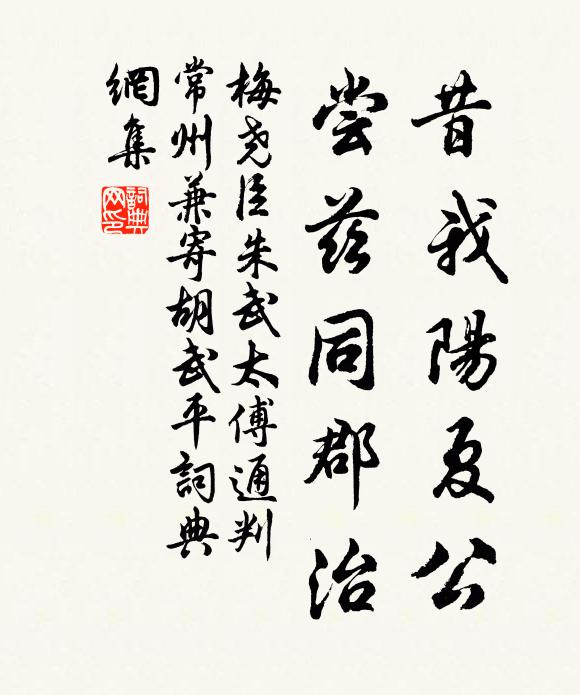 昔我陽夏公
尝兹同郡治
梅尧臣朱武太傅通判
常州兼寄胡武平詞典
網集
詞典
网印